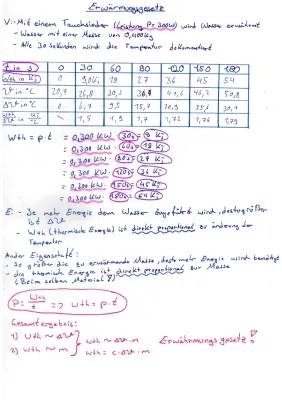 Erwärmungsgesetz
V:- Mit einem Tauchsieder (Leistung P= 300W) wird Wasser erwärmt
- Wasser mit einer Masse von 0,400kg
- Alle 30 Sekunden wird die Temperatur dokumentiert
t in s 0 30 60 80 120 150 180
Wth in KJ 0 9,0KJ 18 27 36 45 54
ϑ in °C 20,7 26,8 30,2 36,4 41,6 46,2 50,8
Δϑ in °C 0 6,1 9,5 15,7 20,9 25,5 30,1
Wth = p·t = 0,300 KW · 30s = 9 KJ
= 0,300 KW · 60s = 18 KJ
= 0,300 KW · 80s = 27 KJ
= 0,300 KW · 120s = 36 KJ
= 0,300 KW · 150s = 45 KJ
= 0,300 KW · 180s = 54 KJ
E: - Je mehr Energie dem Wasser zugeführt wird, desto größer
ist Δϑ
- Wth (thermische Energie) ist direkt proportional zu änderung der
Temperatur
Ander Eigenschaft:
- Je größer die zu erwärmende Masse, desto mehr Energie wird benötigt
- die thermische Energie ist direkt proportional zur Masse
(Beim selben Material!)
P = Wth/t => Wth = p·t
Gesamtergebnis:
1) Wth ~ Δϑ
2) Wth ~ m
Wth ~ Δϑ·m
Wth = c·Δϑ·m
Erwärmungsgesetz!